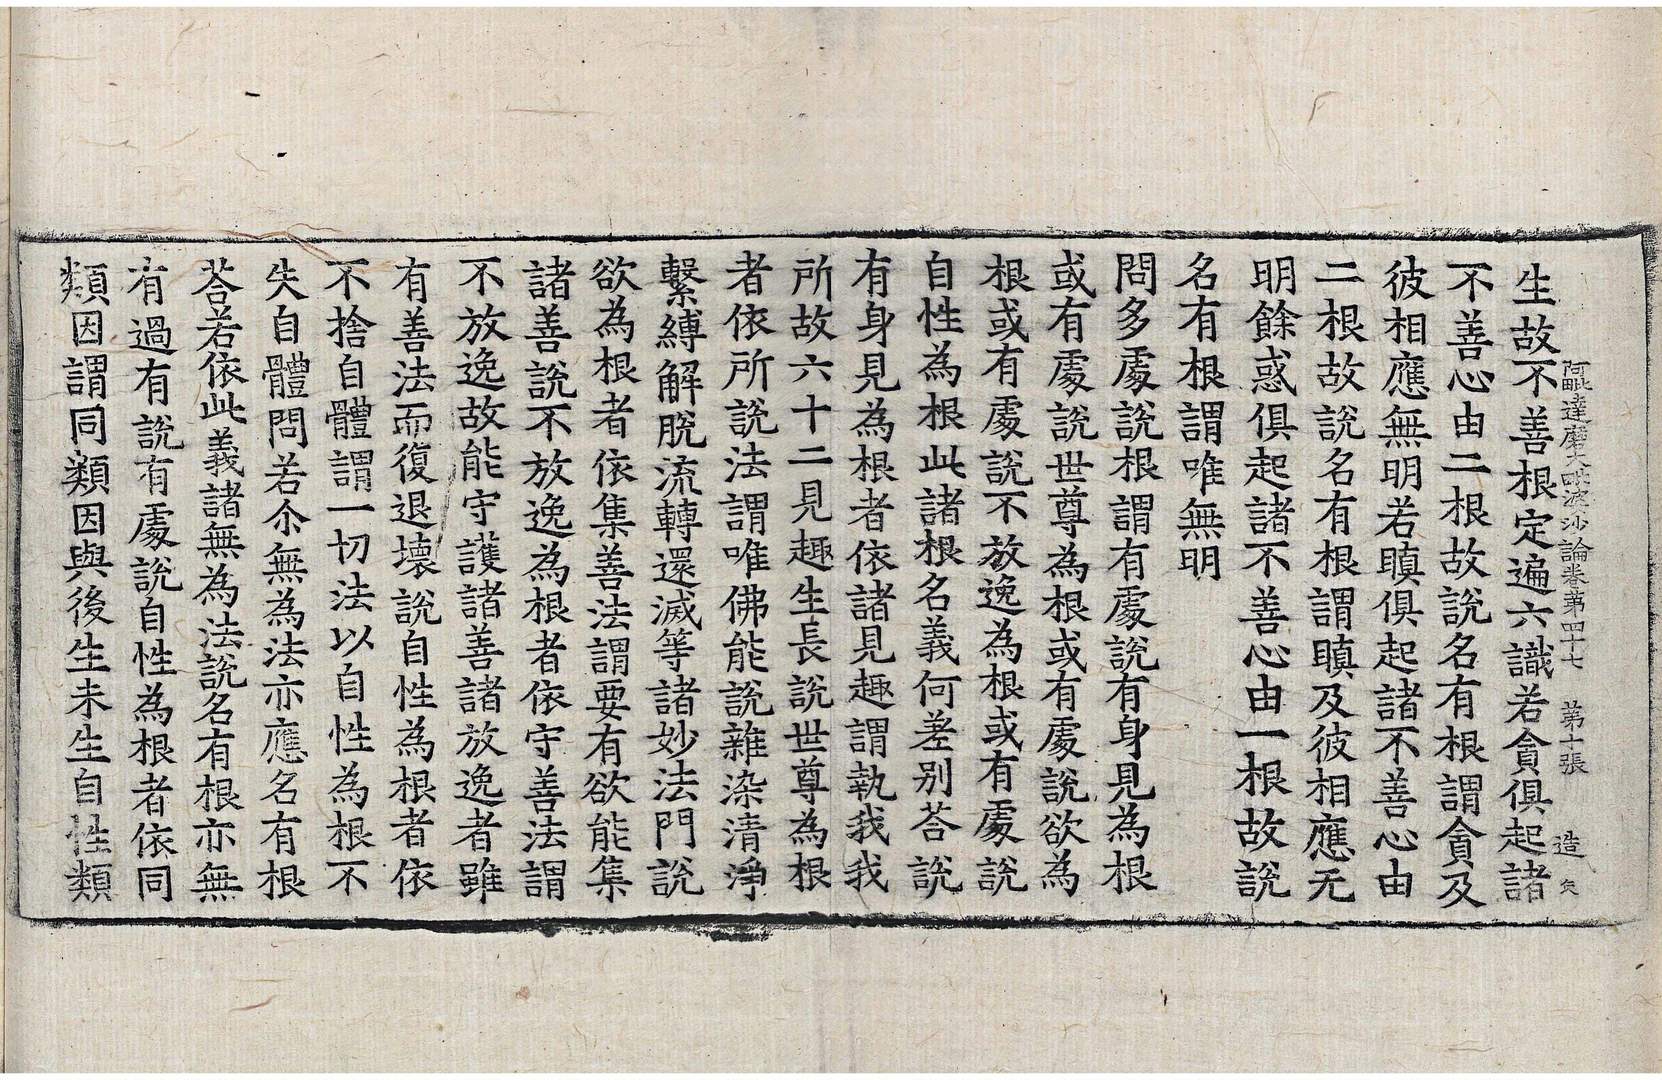 阿毗達磨大毗婆沙論卷第四十七　第十張　造
生故不善根定遍六識若貪俱起諸
不善心由二根故說名有根謂貪及
彼相應無明若瞋俱起諸不善心由
二根故說名有根謂瞋及彼相應无
明餘惑俱起諸不善心由一根故說
名有根謂唯無明
問多處說根謂有處說有身見為根
或有處說世尊為根或有處說欲為
根或有處說不放逸為根或有處說
自性為根此諸根名義何差別荅說
有身見為根者依諸見趣謂執我我
所故六十二見趣生長說世尊為根
者依所說法謂唯佛能說雜染清淨
繫縛解脫流轉還滅等諸妙法門說
欲為根者依集善法謂要有欲能集
諸善說不放逸為根者依守善法謂
不放逸故能守護諸善諸放逸者雖
有善法而復退壞說自性為根者依
不捨自體謂一切法以自性為根不
失自體問若尒無為法亦應名有根
荅若依此義諸無為法說名有根亦無
有過有說有處說自性為根者依同
類因謂同類因與後生未生自性類